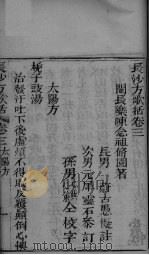 長沙方歌括卷三
閩長樂陳念祖修園著
長男 蔚古愚擬註
次男元犀靈石參訂
孫男
仝校字
太陽方
梔子豉湯
治發汗吐下後虛煩不得眠反覆顛倒心懊
長沙方歌括 卷三太陽方